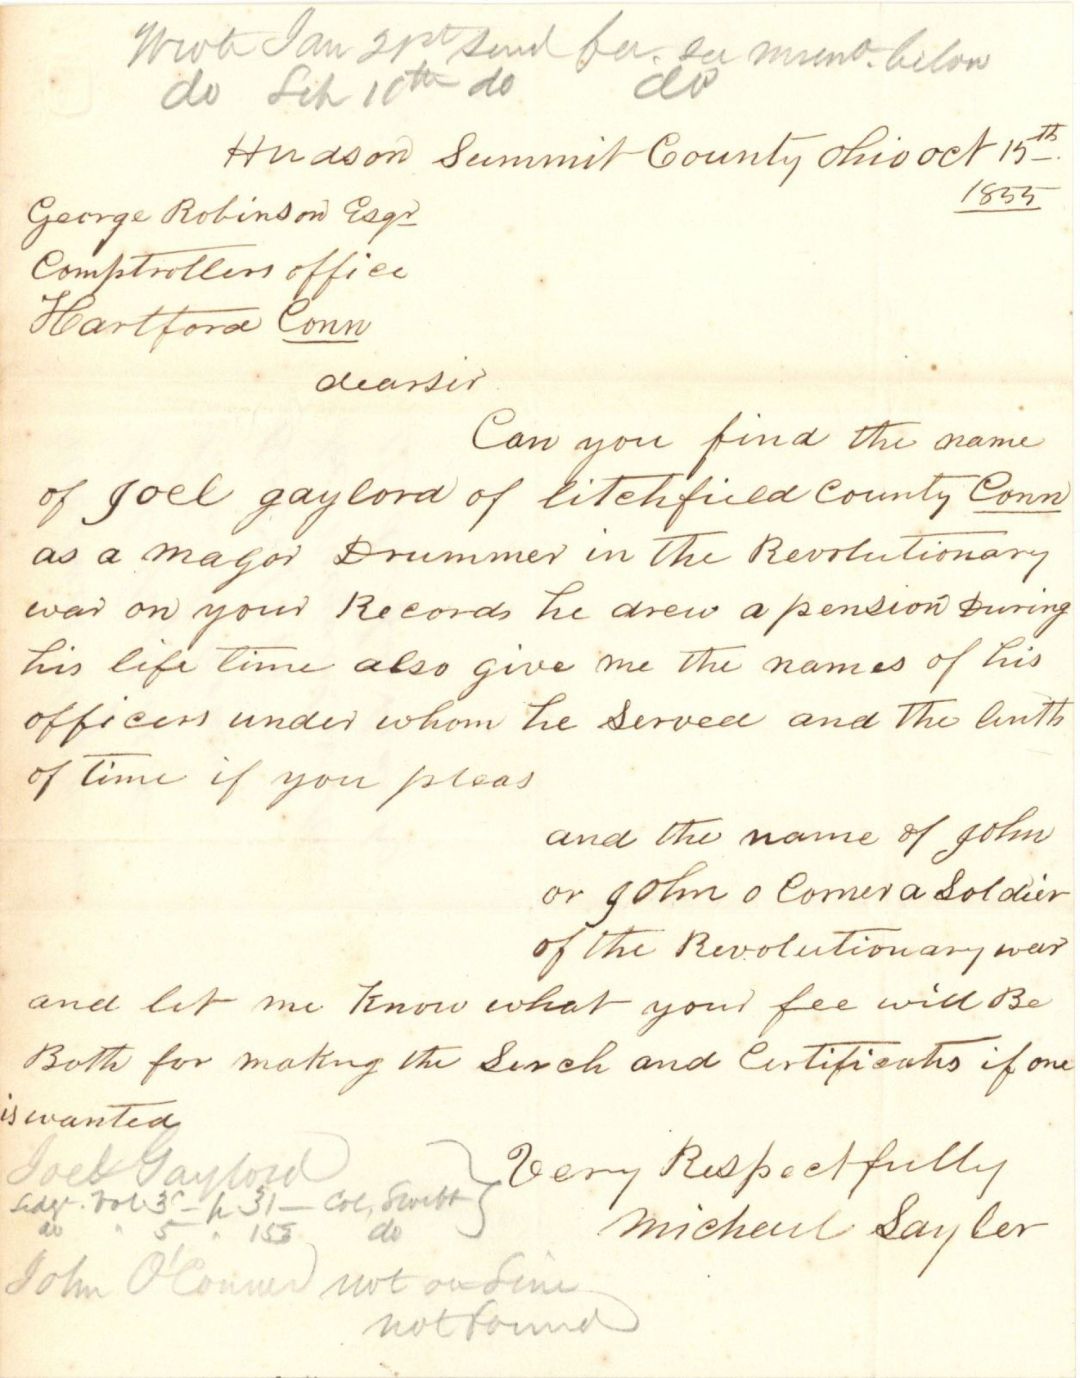 Wrote Jan 21st send fee. see mem. below
do Feb 10th do do
Hudson Summit County Ohio oct 15th
1855
George Robinson Esqr
Comptrollers office
Hartford Conn
dear sir
Can you find the name
of Joel gaylord of litchfield County Conn
as a magor Drummer in the Revolutionary
war on your Records he drew a pension During
his life time also give me the names of his
officers under whom he Served and the linth
of time if you pleas
and the name of John
or John o Comer a Soldier
of the Revolutionary war
and let me Know what your fee will Be
Both for making the Serch and Certificates if one
is wanted
Very Respectfully
Michael Sayler
Joel Gaylord
Vol 3 - p 31 - Col. Swift
do " 5 " 153 do
John O'Conner not on
not found